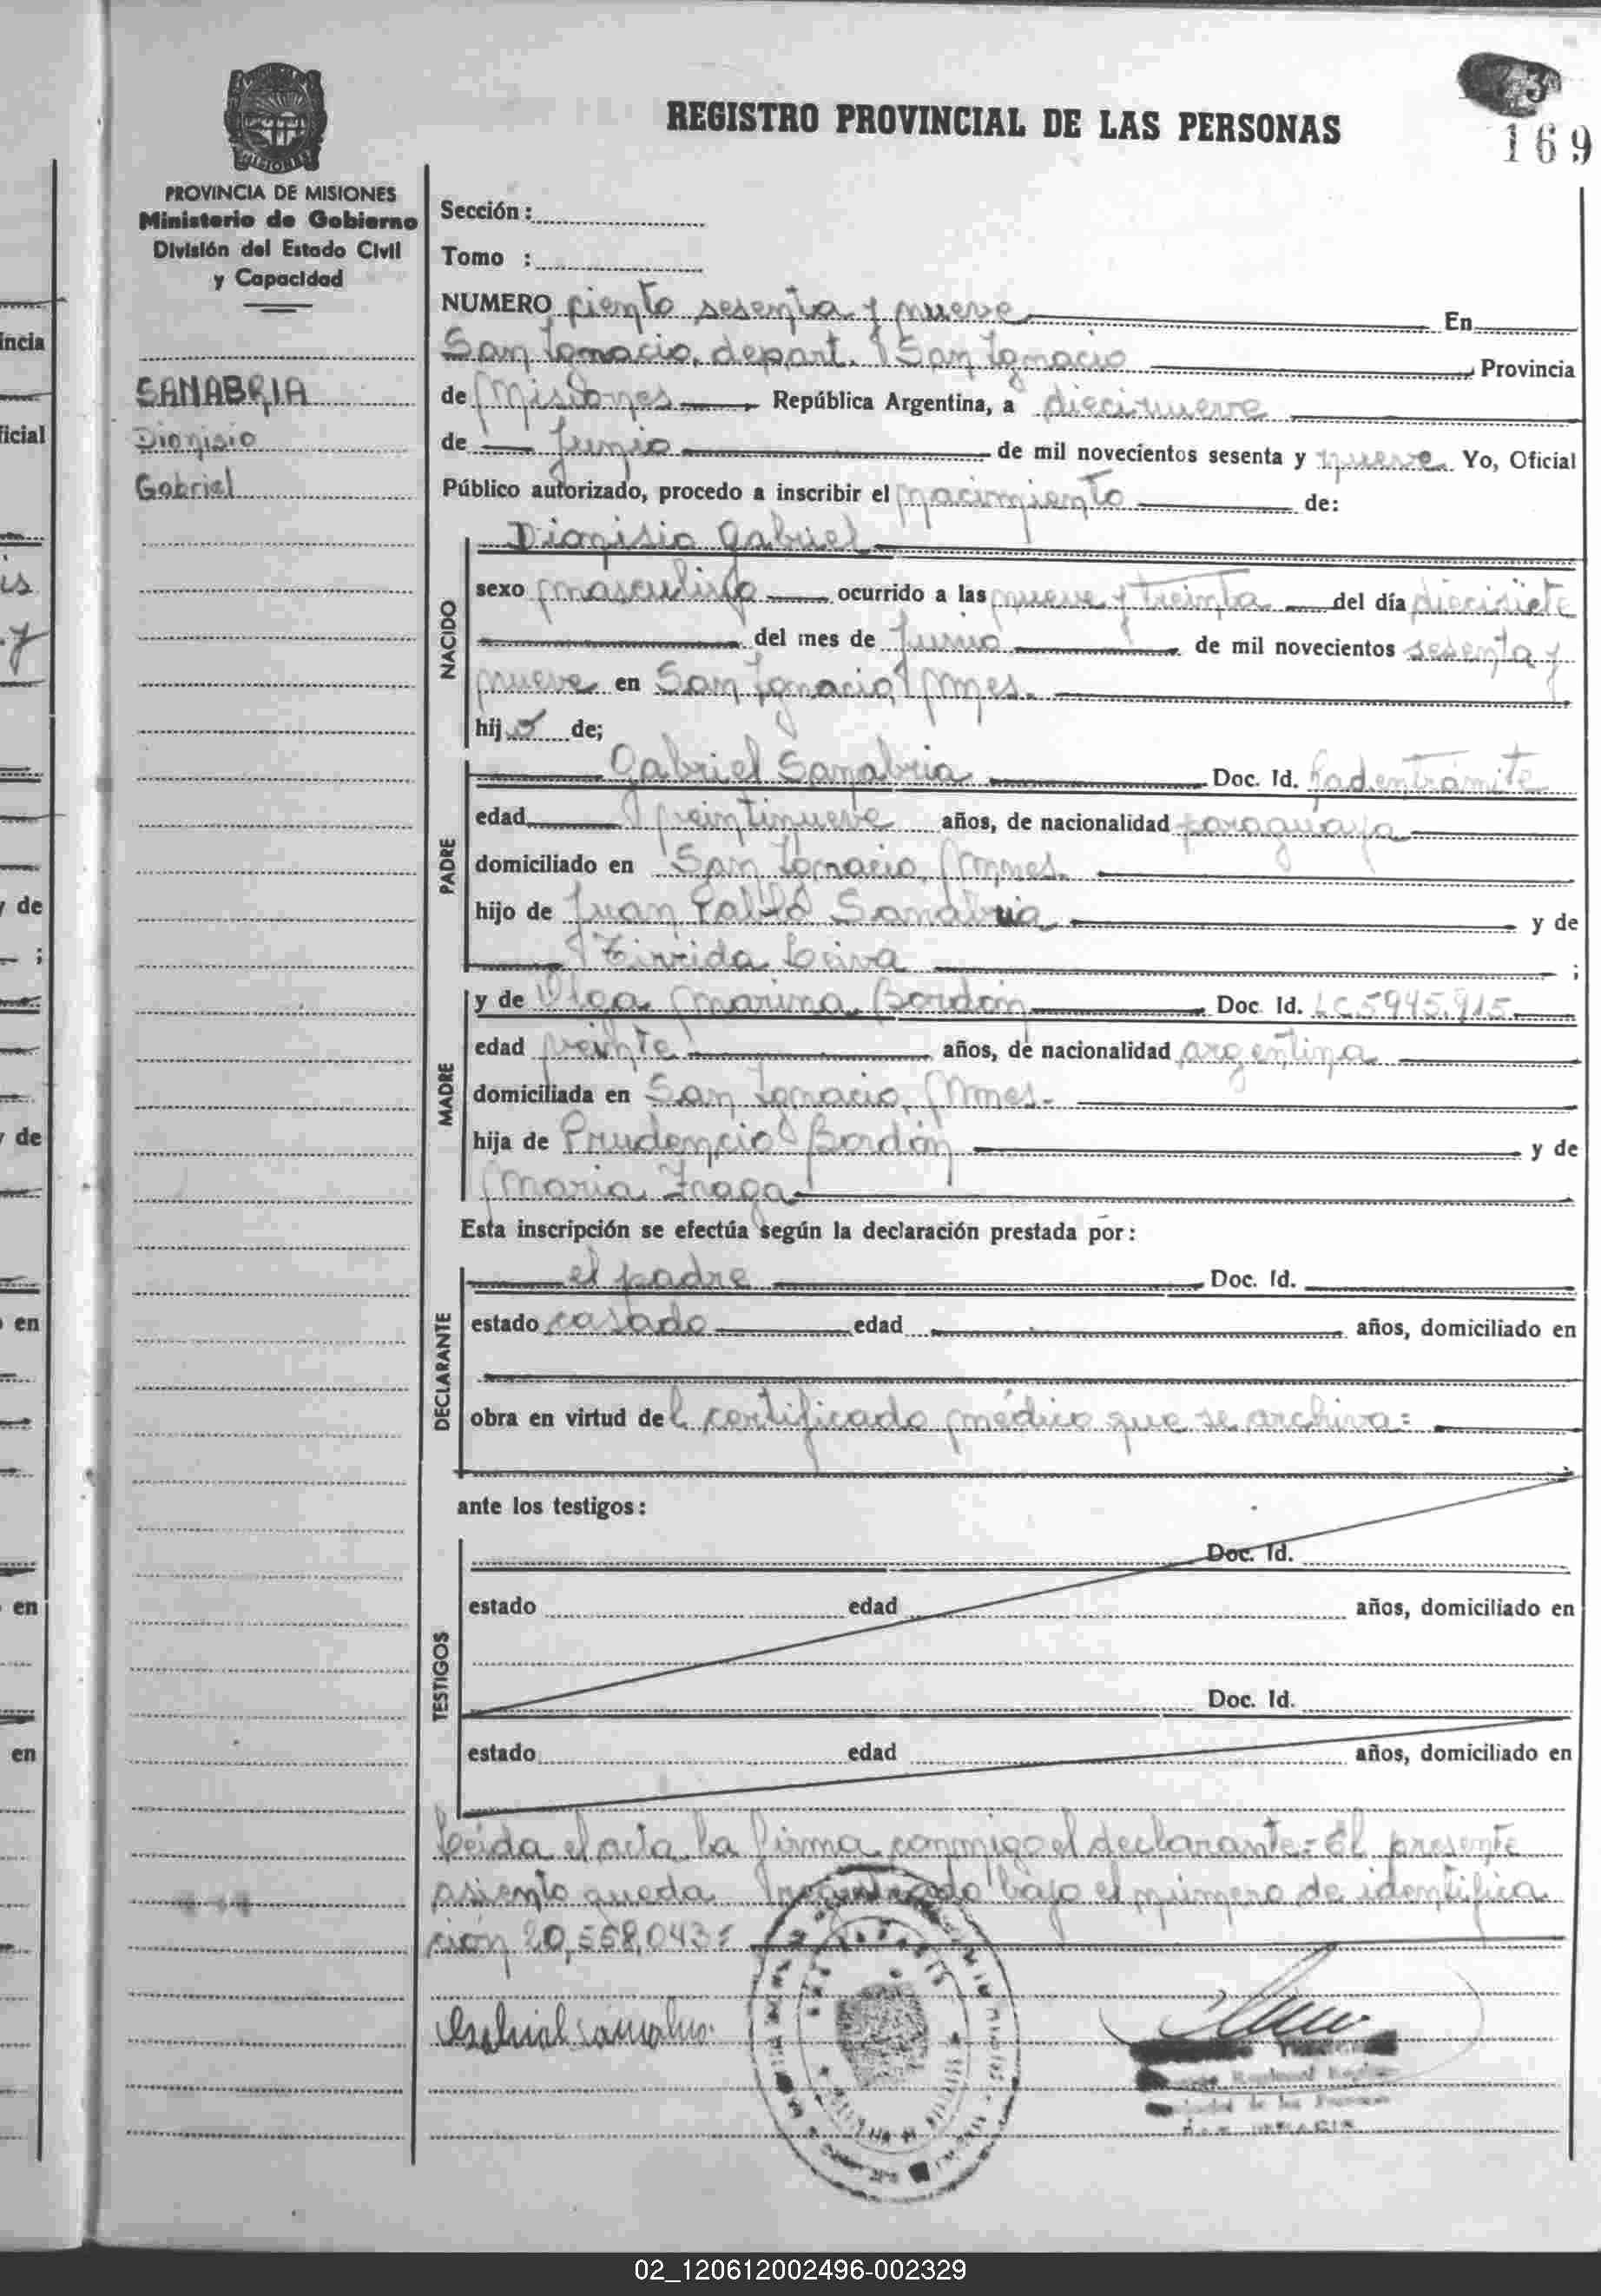 REGISTRO PROVINCIAL DE LAS PERSONAS
3
169
MISIONES
PROVINCIA DE MISIONES
Ministerio de Gobierno
División del Estado Civil
y Capacidad
SANABRIA
Dionisio
Gabriel
Sección :
Tomo :
NUMERO ciento sesenta y nueve En
San Ignacio, depart. San Ignacio Provincia
de Misiones República Argentina, a diecinueve
de Junio de mil novecientos sesenta y nueve Yo, Oficial
Público autorizado, procedo a inscribir el nacimiento de:
NACIDO
Dionisio Gabriel
sexo masculino ocurrido a las nueve y treinta del día diecisiete
del mes de Junio de mil novecientos sesenta y
nueve en San Ignacio, Mnes.
hijo de;
PADRE
Gabriel Sanabria Doc. Id. Radentrámite
edad veintinueve años, de nacionalidad paraguaya
domiciliado en San Ignacio, Mnes.
hijo de Juan Pablo Sanabria y de
Leiva ;
MADRE
y de Olga Marina Bordón Doc. Id. LC.5945.915
edad veinte años, de nacionalidad argentina
domiciliada en San Ignacio, Mnes.-
hija de Prudencio Bordón y de
Maria Fraga
Esta inscripción se efectúa según la declaración prestada por:
DECLARANTE
el padre Doc. Id.
estado casado edad años, domiciliado en
obra en virtud del certificado médico que se archiva=
ante los testigos:
TESTIGOS
Doc. Id.
estado edad años, domiciliado en
Doc. Id.
estado edad años, domiciliado en
Leida el acta, la firma conmigo el declarante.= El presente
asiento queda bajo el número de identifica
ción 20,558,043=
02_120612002496-002329